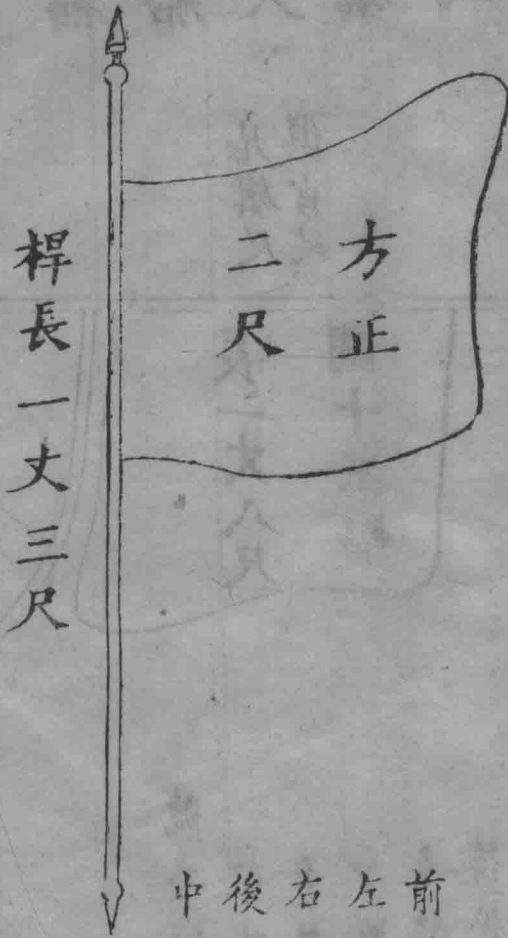 方正
二尺
桿長一丈三尺
前左右後中